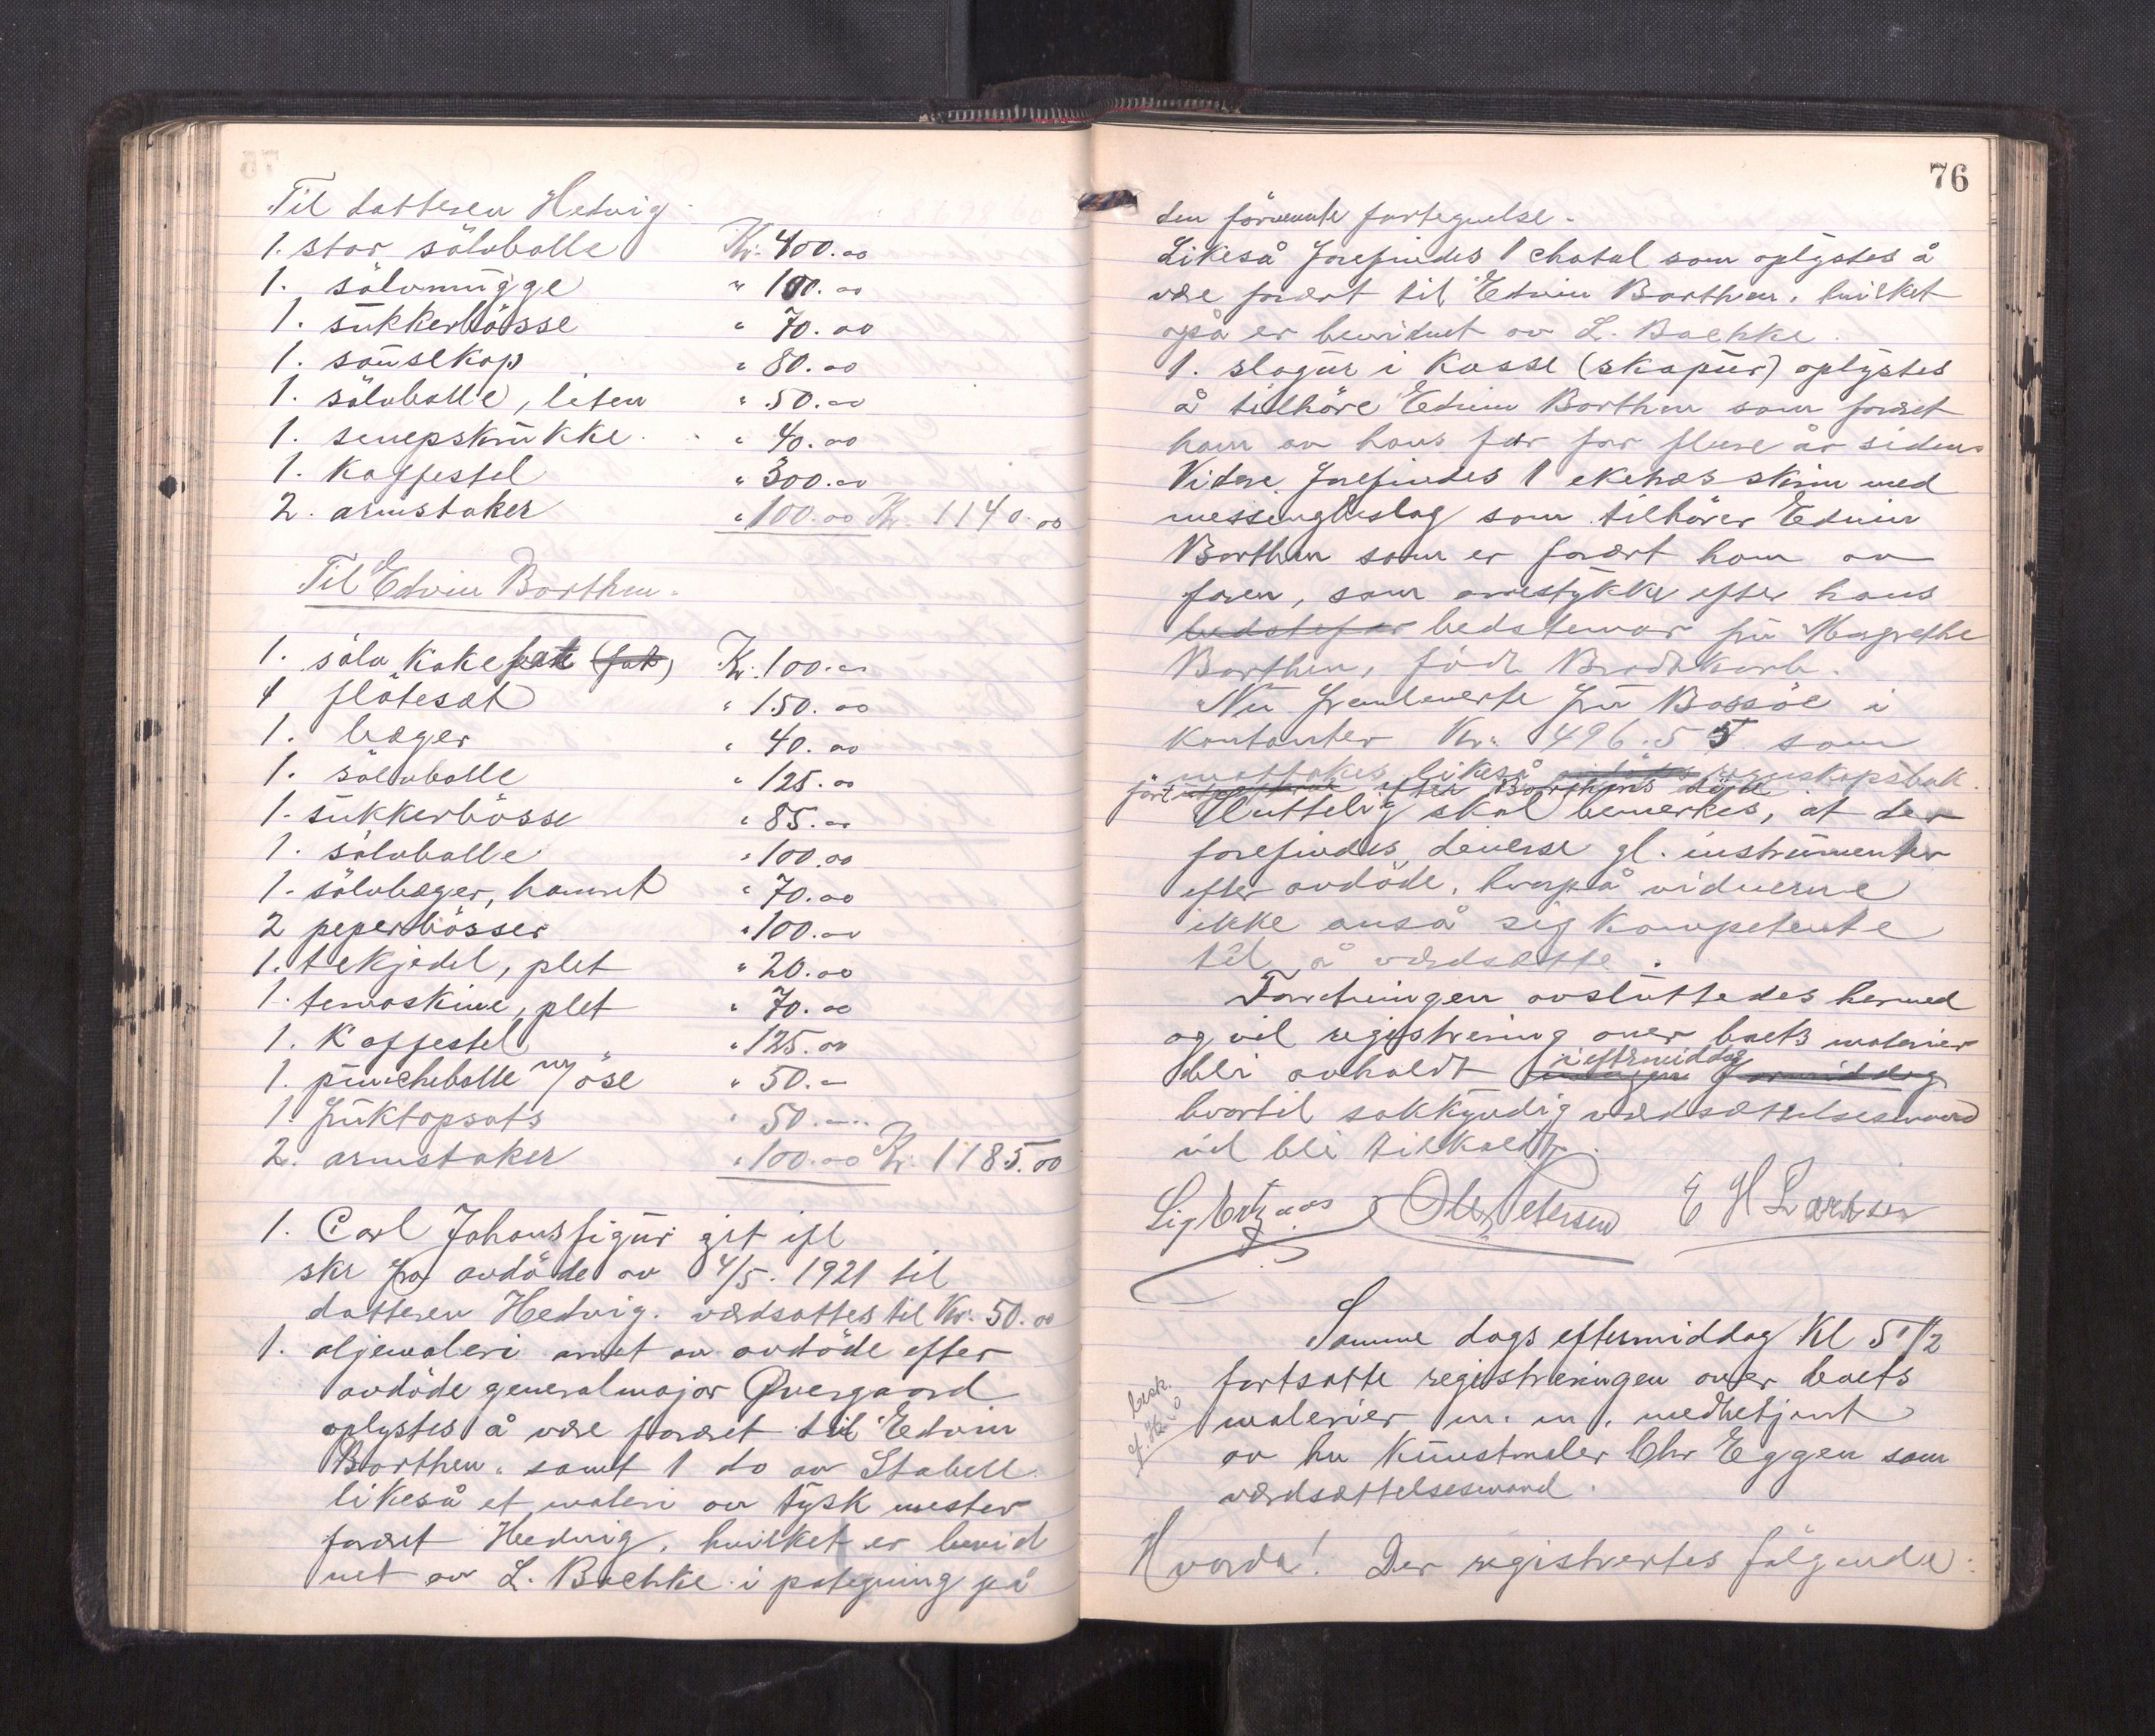 Til datteren Hedvig
1. stor sølvbolle Kr. 400.00
1. sølvmugge " 100.00
1. sukkerbøsse " 70.00
1. sausekop " 80.00
1. sølvbolle, liten " 50.00
1. senepskrukke " 40.00
1. kaffestel " 300.00
2. armstaker " 100.00 Kr. 1140.00
Til Edvin Barthen.
1. sølv kakefat (fat) Kr. 100.00
1 fløtesæt " 150.00
1. bæger " 40.00
1. sølvbolle " 125.00
1. sukkerbøsse " 85.00
1. sølvbolle " 100.00
1. sølvbæger, hamret " 70.00
2 peperbøsser " 100.00
1. tekjedel, plet " 20.00
1. temaskine, plet " 70.00
1. Kaffestel " 125.00
1. punchebolle m/ øse " 50.00
1. fruktopsats " 50.00
2. armstaker " 100.00 Kr. 1185.00
1. Carl Johansfigur git ifl
skr fra avdøde av 4/5. 1921 til
datteren Hedvig. værdsattes til Kr. 50.00
1. oljemaleri arvet av avdøde efter
avdøde generalmajor Øvergaard
oplystes å være foræret til Edvin
Barthen. samt 1 do av Stabell
likeså et maleri av tysk mester
foræret Hedvig, hvilket er bevid
net av L. Bachke i påtegning på
76
den førnevnte fortegnelse.
Likeså forefindes 1 chatol som oplystes å
være foræret til Edvin Barthen, hvilket
også er bevidnet av L. Bachke.
1. slagur i kasse (skapur) oplystes
å tilhøre Edvin Barthen som foræret
ham av hans far for flere år siden.
Videre forefindes 1 ekehæs skrin med
messingbeslag som tilhører Edvin
Barthen som er foræret ham av
faren, som arvestykke efter hans
bedstefar bedstemor fru Margrethe
Barthen, født Brodtkorb.
Nu fremleverte fru Bassøe i
kontanter Kr. 496.55 som
mottokes likeså regnskapsbok
ført efter Barthens døde
Sluttelig skal bemerkes, at der
forefindes diverse gl. instrumenter
efter avdøde, hvorpå vidnerne
ikke anså sig kompetente
til å værdsætte.
Forretningen avsluttedes hermed
og vil registrering over boets malerier
bli avholdt i eftermiddag formiddag
hvortil sakkyndig værdsættelsesmand
vil bli tilkaldt.
Ole Petersen E H Larsen
Samme dags eftermiddag Kl 5 1/2
fortsatte registreringen over boets
malerier m. m. medbetjent
av hr kunstmaler Chr Eggen som
værdsættelsesmand.
Hvorda! Der registrertes følgende: